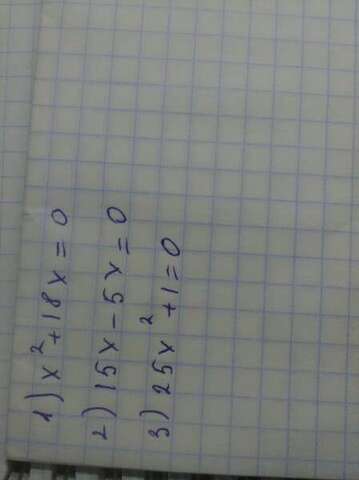 1) x² + 18x = 0
2) 15x - 5x = 0
3) 25x² + 1 = 0